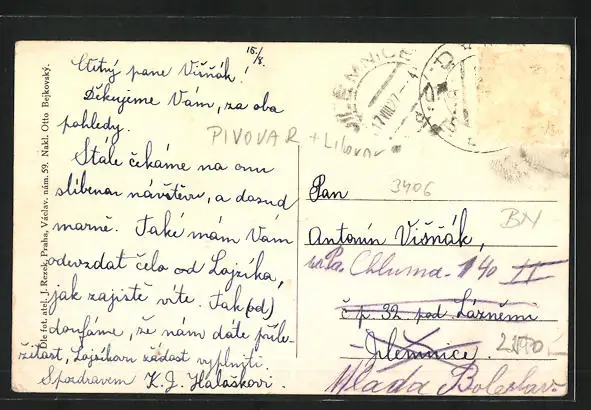 15./8.
Ctěný pane Višňák!
Děkujeme Vám, za oba
pohledy.
PIVOVAR + Lihovar
Stále čekáme na onu
slíbenou návštěvu, a dosud
marně. Také mám Vám
odevzdat čelo od Lojzíka,
jak zajistě víte. Tak (od)
doufáme, že nám dáte příle-
žitost, Lojzíkovu žádost vyplniti.
Spozdravem K. J. Haláškovi.
Dle fot. atel. J. Rezek, Praha, Václav. nám. 59. Nakl. Otto Bejkovský.
JILEMNICE
17.VIII.27.-4
Pan
3406
BN
Antonín Višňák,
Chluma 140 II
č p. 32 pod Lázněmi
Jilemnice
Mladá Boleslav